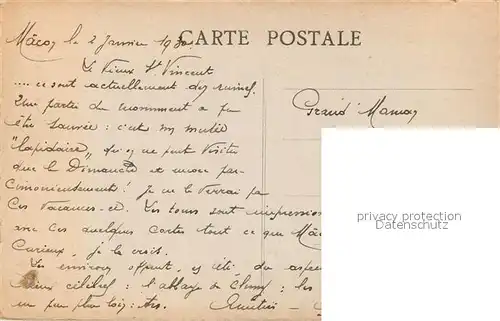 Mâcon le 2 Janvier 1930. CARTE POSTALE
Le Vieux St Vincent
.... ce sont actuellement des ruines.
Une partie du monument a pu
être sauvée : c'est un musée
"lapidaire" qu'on ne peut visiter
que le Dimanche et encore par-
cimonieusement ! Je ne le verrai pas
ces vacances-ci. Les tours sont
avec ces quelques cartes tout ce que
curieux, je le crois.
Les environs offrent, en été, des
lieux célèbres : l'abbaye de Cluny ; les
un peu plus loin
Grand'Maman
privacy protection
Datenschutz